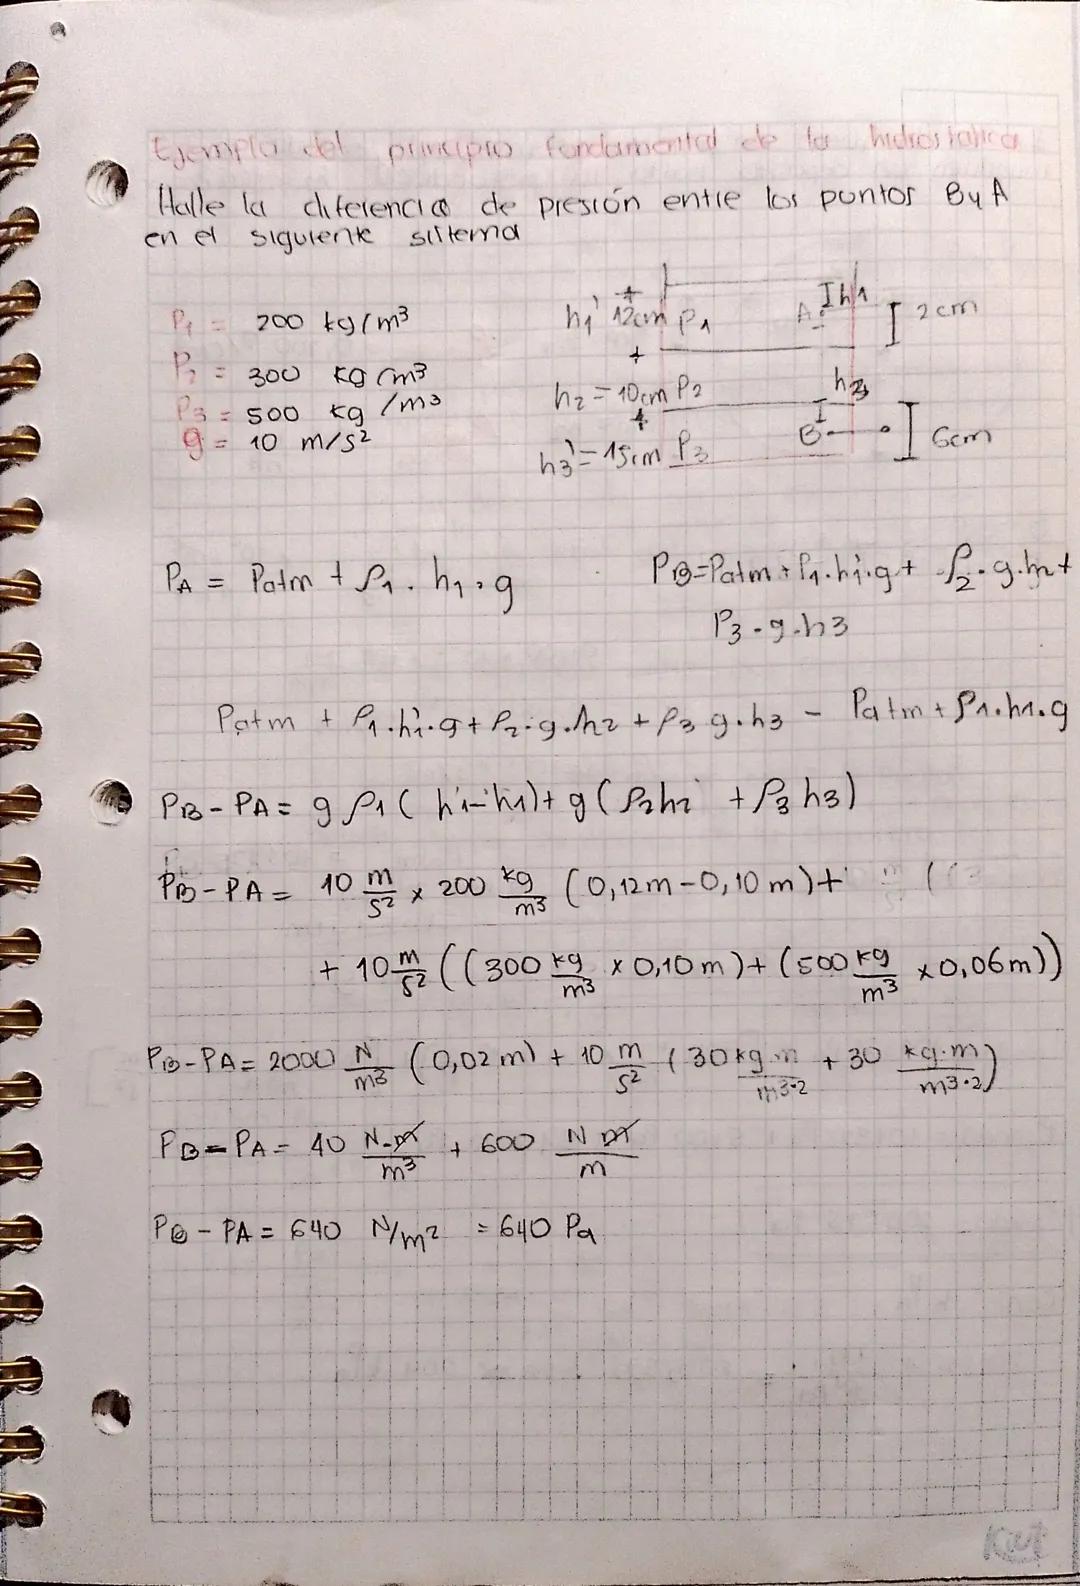 Ejemplo del principio fundamental de la hidrostatica
Halle la diferencia de presión entre los puntos B y A
en el siguiente sistema
ρ1 = 200 kg/m³
ρ2 = 300 kg/m³
ρ3 = 500 kg/m³
g = 10 m/s²
h1' 12cm ρ1 A h1 2cm
h2 = 10cm ρ2 h3
h3' = 15cm ρ3 B 6cm
PA = Patm + ρ1 . h1 . g
PB = Patm + ρ1.h1'.g + ρ2.g.h2 +
ρ3.g.h3
Patm + ρ1.h1'.g + ρ2.g.h2 + ρ3 g.h3 - Patm + ρ1.h1.g
PB - PA = g ρ1 (h'1 - h1) + g (ρ2h2 + ρ3 h3)
PB - PA = 10 m/s² x 200 kg/m³ (0,12m - 0,10m) +
+ 10 m/s² ((300 kg/m³ x 0,10m) + (500 kg/m³ x 0,06m))
PB - PA = 2000 N/m³ (0,02m) + 10 m/s² (30 kg.m/m³·2 + 30 kg.m/m³·2)
PB - PA = 40 N.m/m³ + 600 N m/m
PB - PA = 640 N/m² = 640 Pa